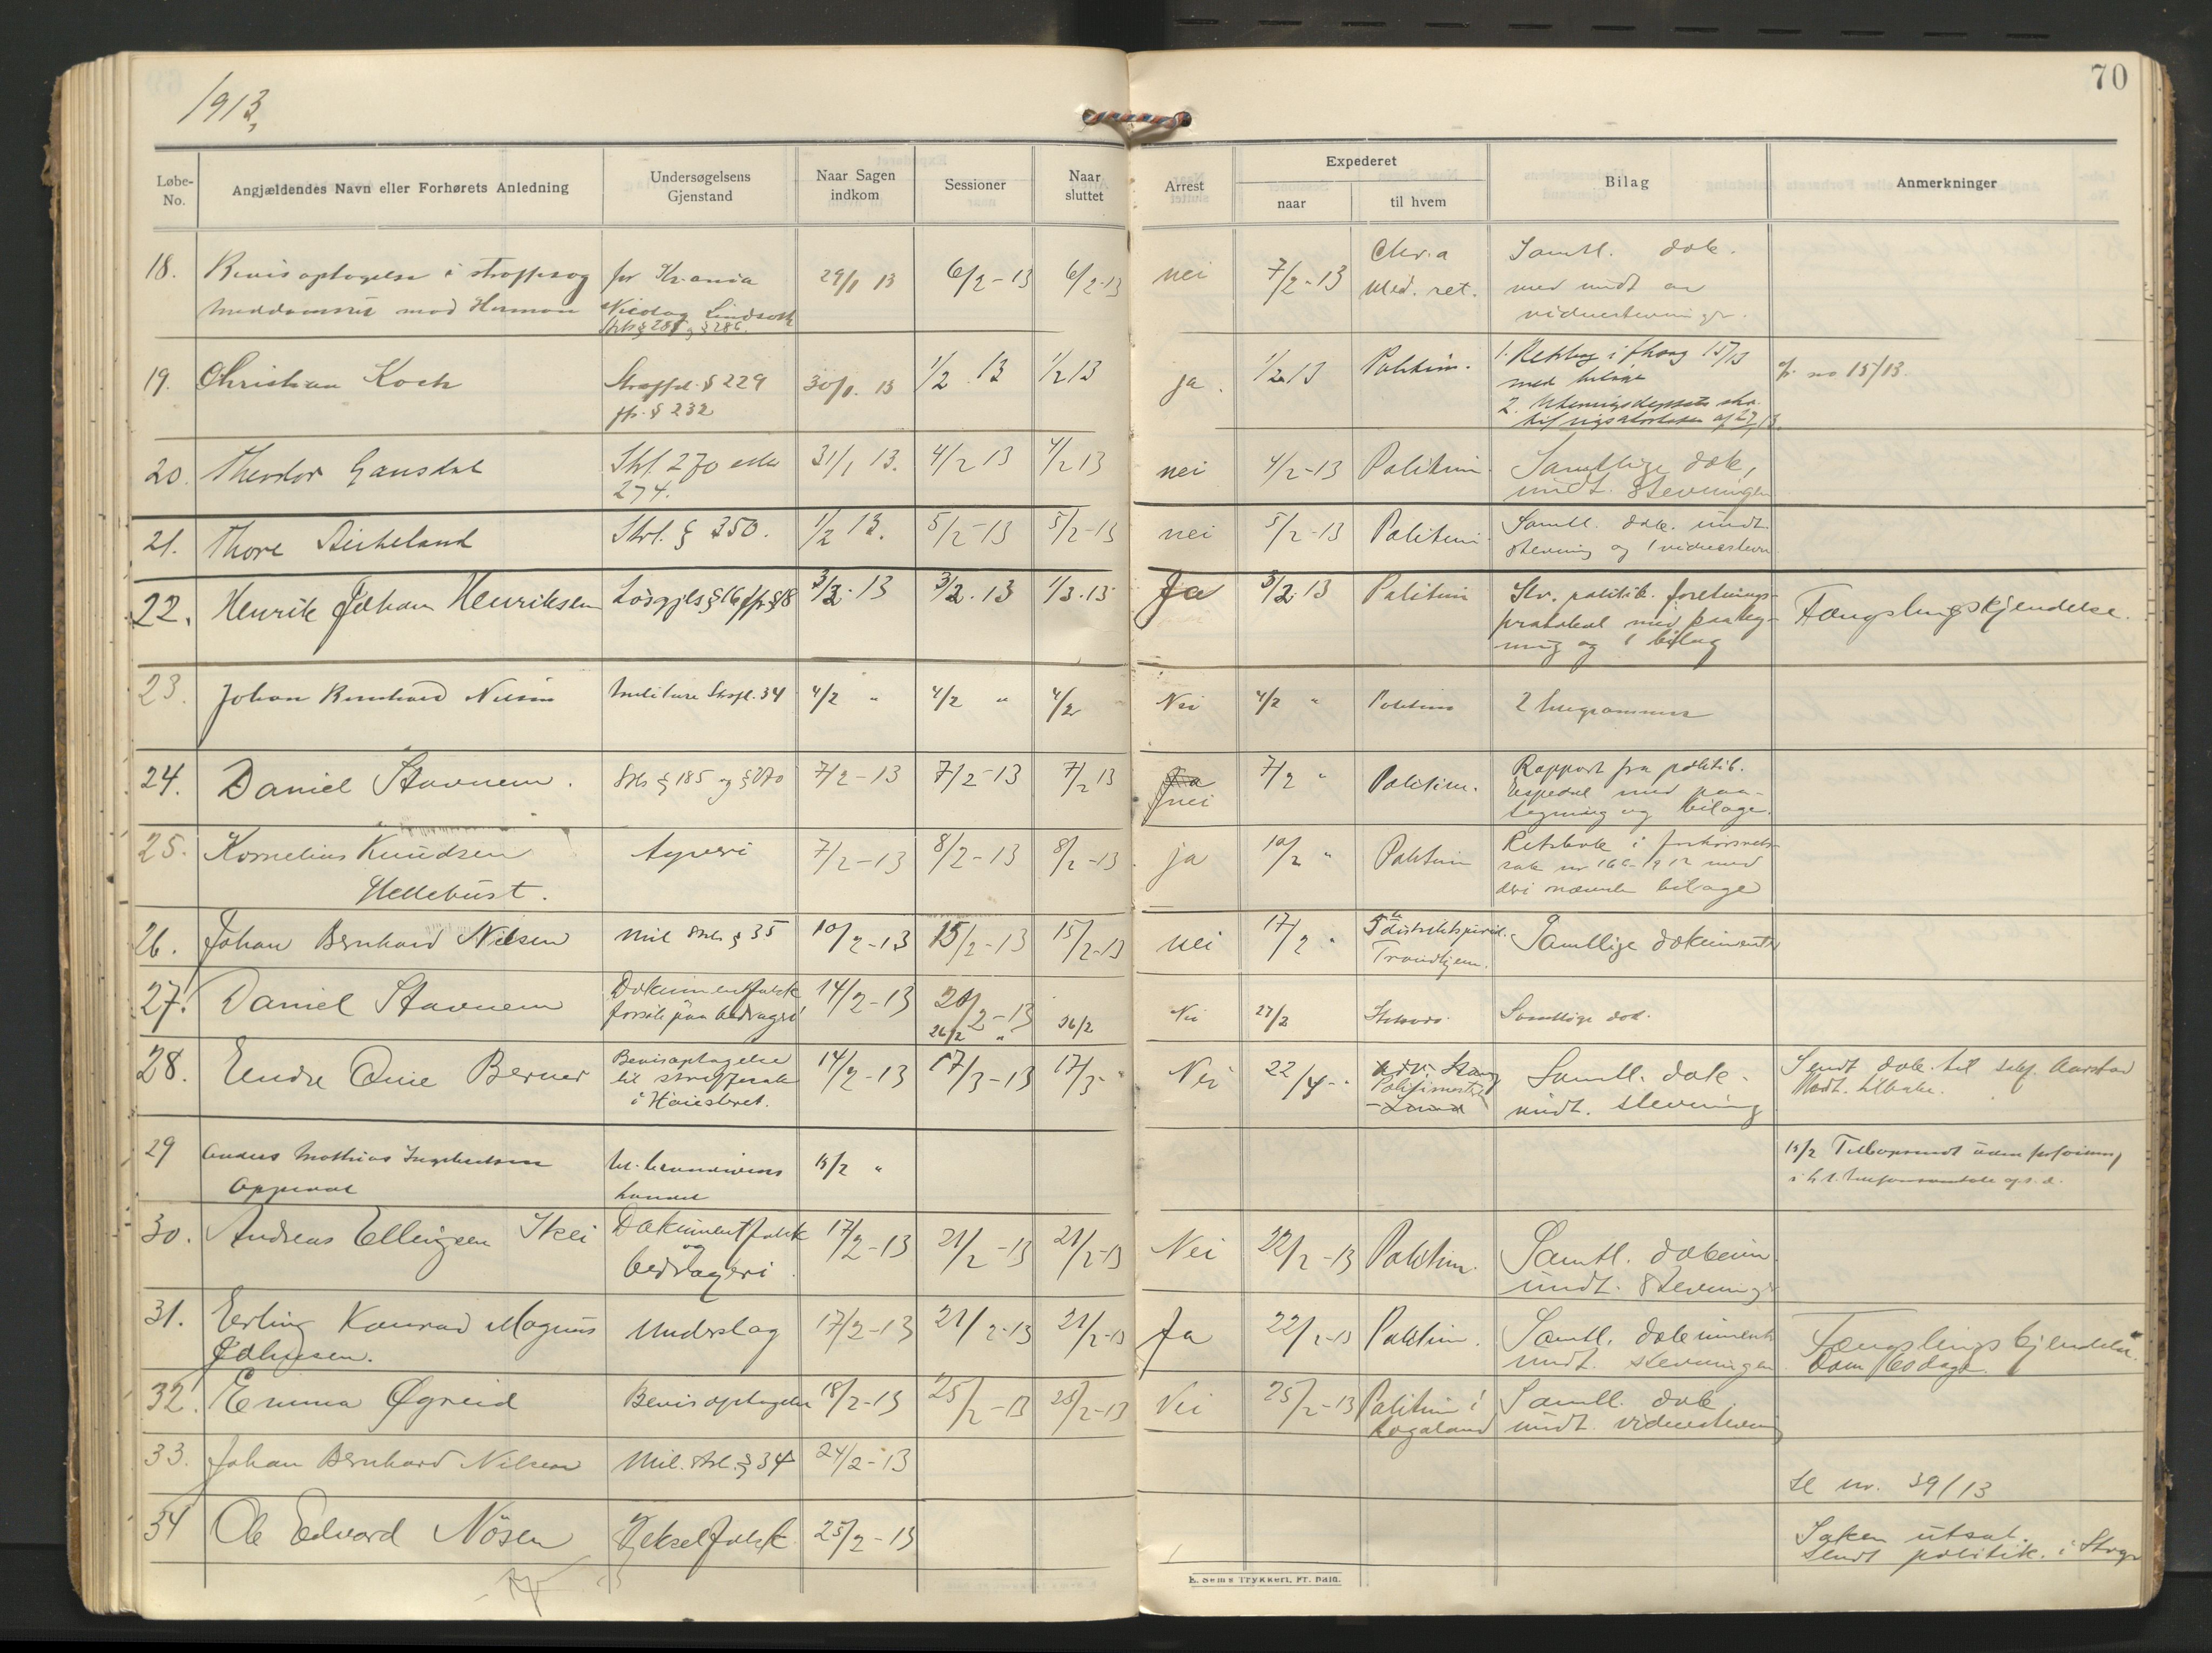 1913.
70
Løbe-No.
Angjældendes Navn eller Forhørets Anledning
Undersøgelsens Gjenstand
Naar Sagen indkom
Sessioner
Naar sluttet
Arrest
Expederet
naar
til hvem
Bilag
Anmerkninger
18. Bevisoptagelse i straffesag for Kr.ania 29/1 13 6/2-13 6/2-13 nei 7/2-13 Chr.a Samtl. dok.
meddomsret mod Herman Nicolay Med. ret. med undt av
Strl § 286. vidnestevninger.
19. Christian Koch Straffel. § 229 30/1. 13 1/2 13 1/2 13 ja. 1/2 13 Politim. 1. 15/13 no 15/13.
jfr. § 232 med bilage
2.
20. Theodor Strl. 270 eller 31/1 13. 4/2 13 4/2 13 nei 4/2-13 Politim. Samtlige dok,
274. undt. stevningen
21. Thore Birkeland Strl. § 350. 1/2 13. 5/2-13 5/2-13 nei 5/2-13 Politim Samtl. dok. undt.
stevning og 1 vidnestevn
22. Henrik Johan Henriksen Løsgjl § 16 jfr § 18 3/2.13 3/2.13 Ja 3/2.13 Politim Skr. politik. forelnings- Fængslingskjendelse.
protokol med paateg-
ning og 1 bilag
23. Johan Bernhard Nilsen militære Strfl. 34 4/2 " 4/2 " 4/2 Nei 4/2 " Politim 2 telegrammer
24. Daniel Stavnem. Strl § 185 og § 270 7/2-13 7/2-13 7/2 13 Ja nei 7/2 " Politim. Rapport fra politib.
Espedal med paa-
tegning og bilage.
25. Kornelius Knudsen tyveri 7/2-13 8/2-13 8/2-13. ja 10/2 " Politim Retsbok i forhørsrets-
Hellebust. sak nr 166-1912 med
deri nævnte bilage
26. Johan Bernhard Nilsen Mil strl § 35 10/2-13 15/2-13 15/2-13 nei 17/2 " 5te Samtlige dokumenter
Trondhjem.
27. Daniel Stavnem Dokumentfalsk 14/2-13 20/2-13 Nei 27/2 Samtlige dok.
forsøk paa bedrageri 26/2 " 26/2
28. Endre Qvie Berner Bevisoptagelse 14/2-13 17/3-13 17/3- " Nei 22/4- " Adv. Samtl. dok. Sendt dok. til Aarstad
til straffesak Politimester undt. stevning Modt. tilbake.
i Høiesteret. Lund
29 Anders Mathias Ingebretsen ul. brændevins 15/2 " 15/2 Tilbakesendt uten
Oppedal handel
30. Andreas Ellingsen Skei Dokumentfalsk 17/2-13 21/2-13 21/2-13 Nei 22/2-13 Politim. Samtl. dokum
og bedrageri undt. stevning
31. Erling Konrad Magnus Underslag 17/2-13 21/2-13 21/2-13 Ja 22/2-13 Politim. Samtl. dokumenter Fængslingskjendelse.
Johnsen. undt. stevningen. Dom 60 dage
32. Emma Øgreid Bevisoptagelse 18/2-13 25/2-13 25/2-13 Nei 25/2-13 Politim i Samtl. dok.
Rogaland undt. vidnestevning
33. Johan Bernhard Nilsen Mil. strl. § 34 24/2-13
se nr. 39/13
34 Ole Edvard Nösen Vekselfalsk 25/2-13 Saken utsat.
Sendt politik. i
E. Sems Trykkeri, Fr.hald.